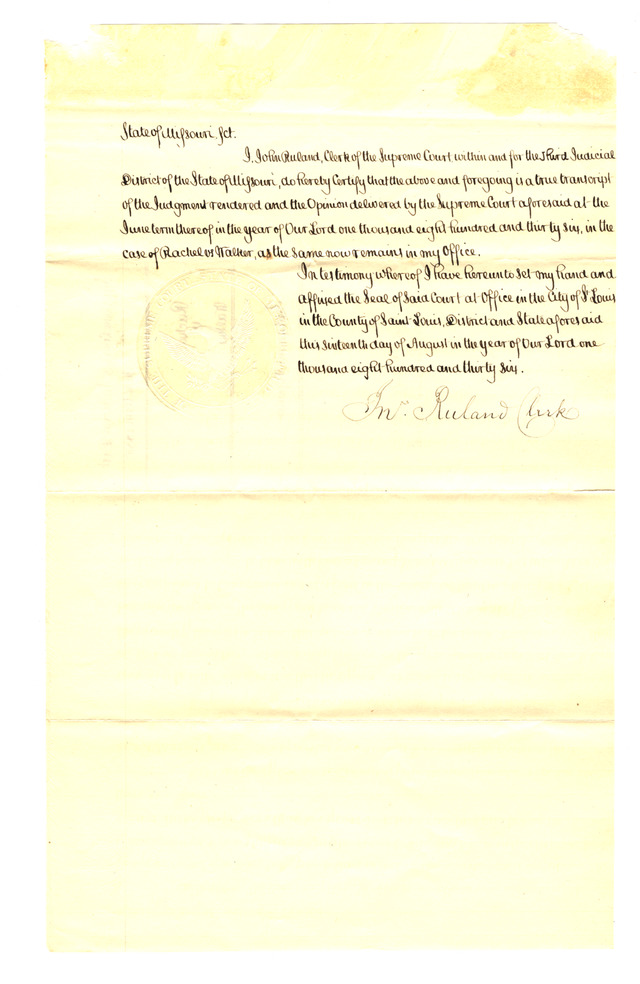 State of Missouri, Sct.
I, John Ruland, Clerk of the Supreme Court, within and for the Third Judicial
District of the State of Missouri, do hereby Certify that the above and foregoing is a true transcript
of the Judgment rendered and the Opinion delivered by the Supreme Court aforesaid at the
June term thereof in the year of Our Lord one thousand eight hundred and thirty six, in the
case of Rachel vs Walker, as the same now remains in my Office.
In testimony whereof I have hereunto set my hand and
affixed the Seal of said Court at Office in the City of St Louis
in the County of Saint Louis, District and State aforesaid
this sixteenth day of August in the year of Our Lord one
thousand eight hundred and thirty six.
Jno. Ruland Clerk